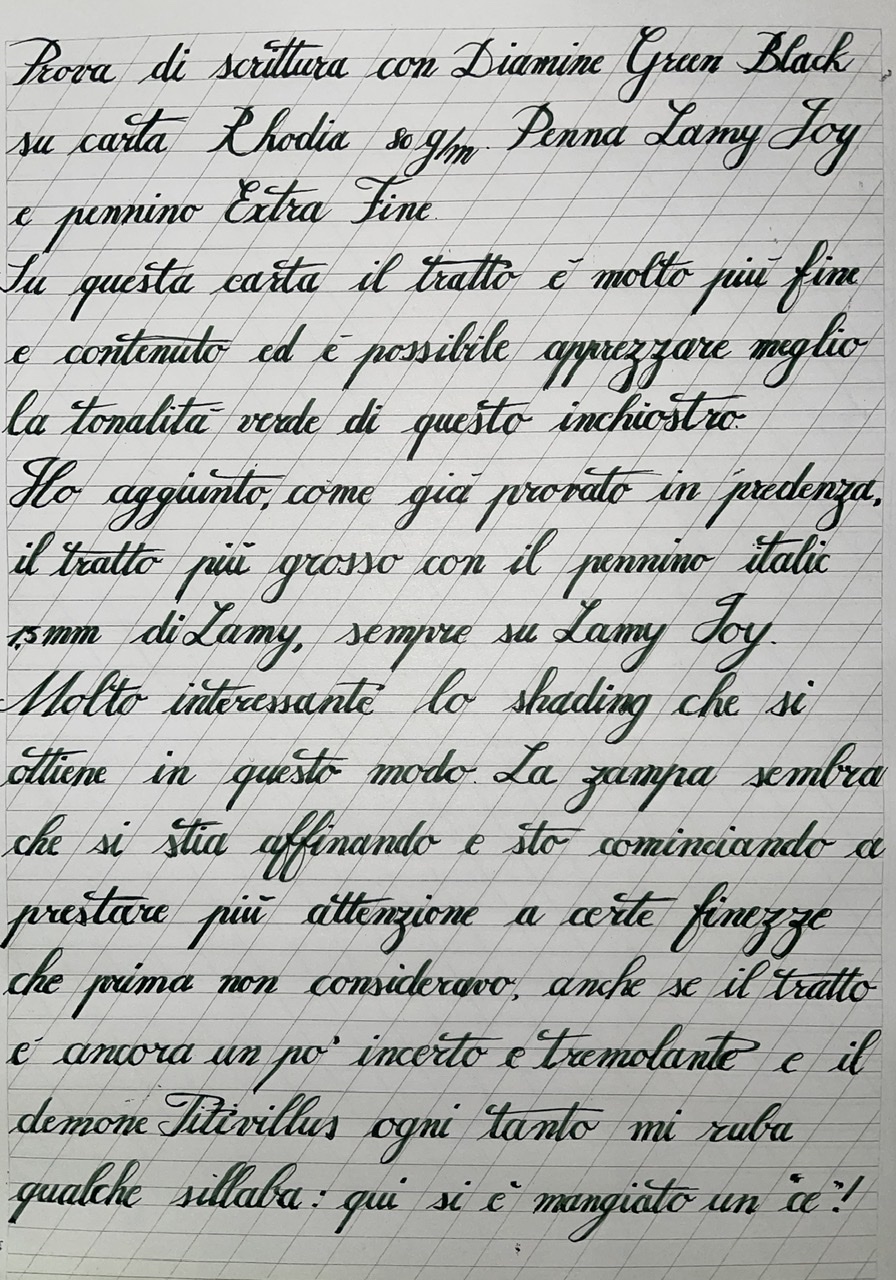 Prova di scrittura con Diamine Green Black
su carta Rhodia 80 g/m. Penna Lamy Joy
e pennino Extra Fine.
Su questa carta il tratto è molto più fine
e contenuto ed è possibile apprezzare meglio
la tonalità verde di questo inchiostro.
Ho aggiunto, come già provato in predenza,
il tratto più grosso con il pennino italic
1,5 mm di Lamy, sempre su Lamy Joy.
Molto interessante lo shading che si
ottiene in questo modo. La zampa sembra
che si stia affinando e sto cominciando a
prestare più attenzione a certe finezze
che prima non consideravo, anche se il tratto
è ancora un po' incerto e tremolante e il
demone Titivillus ogni tanto mi ruba
qualche sillaba: qui si è mangiato un "ce"!